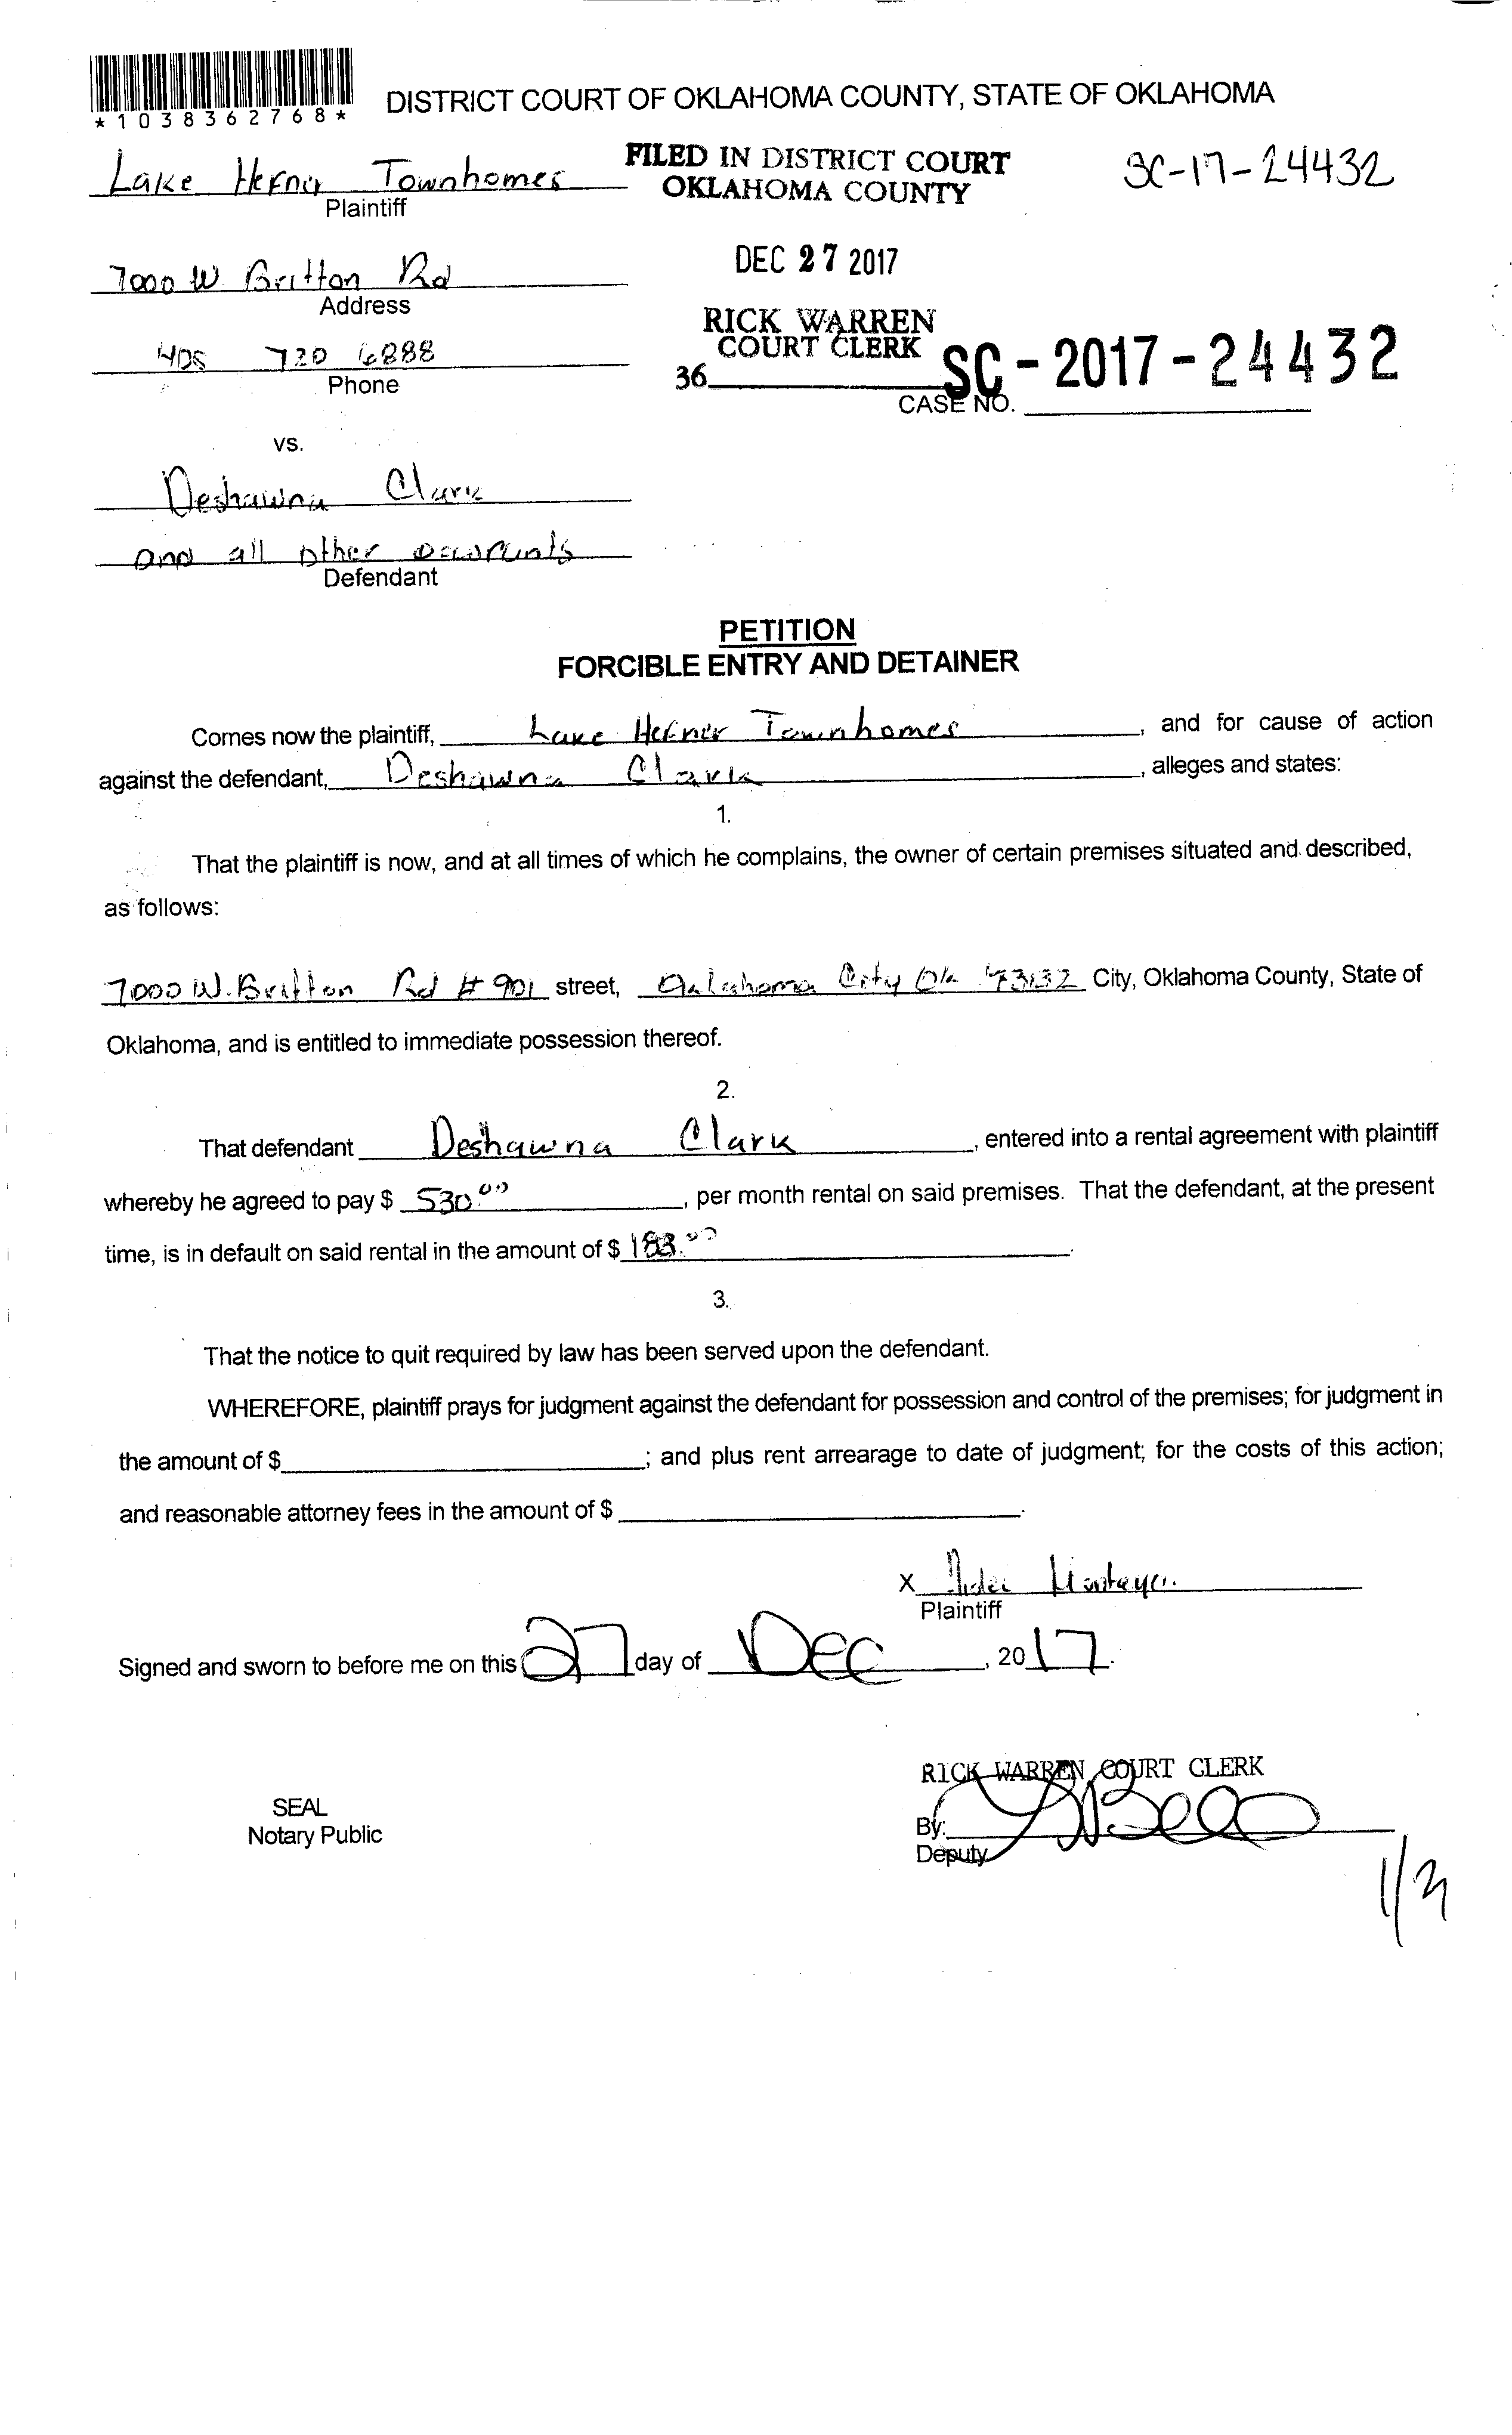 *1038362768*
DISTRICT COURT OF OKLAHOMA COUNTY, STATE OF OKLAHOMA
Lake Hefner Townhomes
Plaintiff
FILED IN DISTRICT COURT
OKLAHOMA COUNTY
SC-17-24432
DEC 27 2017
7000 W. Britton Rd
Address
RICK WARREN
COURT CLERK
405 720 6888
Phone
36
SC-2017-24432
CASE NO.
vs.
Deshawna Clark
and all other occupants
Defendant
PETITION
FORCIBLE ENTRY AND DETAINER
Comes now the plaintiff, Lake Hefner Townhomes, and for cause of action
against the defendant, Deshawna Clark, alleges and states:
1.
That the plaintiff is now, and at all times of which he complains, the owner of certain premises situated and described,
as follows:
7000 W. Britton Rd # 901 street, Oklahoma City Ok 73132 City, Oklahoma County, State of
Oklahoma, and is entitled to immediate possession thereof.
2.
That defendant Deshawna Clark, entered into a rental agreement with plaintiff
whereby he agreed to pay $ 530.00, per month rental on said premises. That the defendant, at the present
time, is in default on said rental in the amount of $ .
3.
That the notice to quit required by law has been served upon the defendant.
WHEREFORE, plaintiff prays for judgment against the defendant for possession and control of the premises; for judgment in
the amount of $; and plus rent arrearage to date of judgment; for the costs of this action;
and reasonable attorney fees in the amount of $.
X
Plaintiff
Signed and sworn to before me on this 27 day of Dec, 2017.
RICK WARREN COURT CLERK
SEAL
Notary Public
By:
Deputy